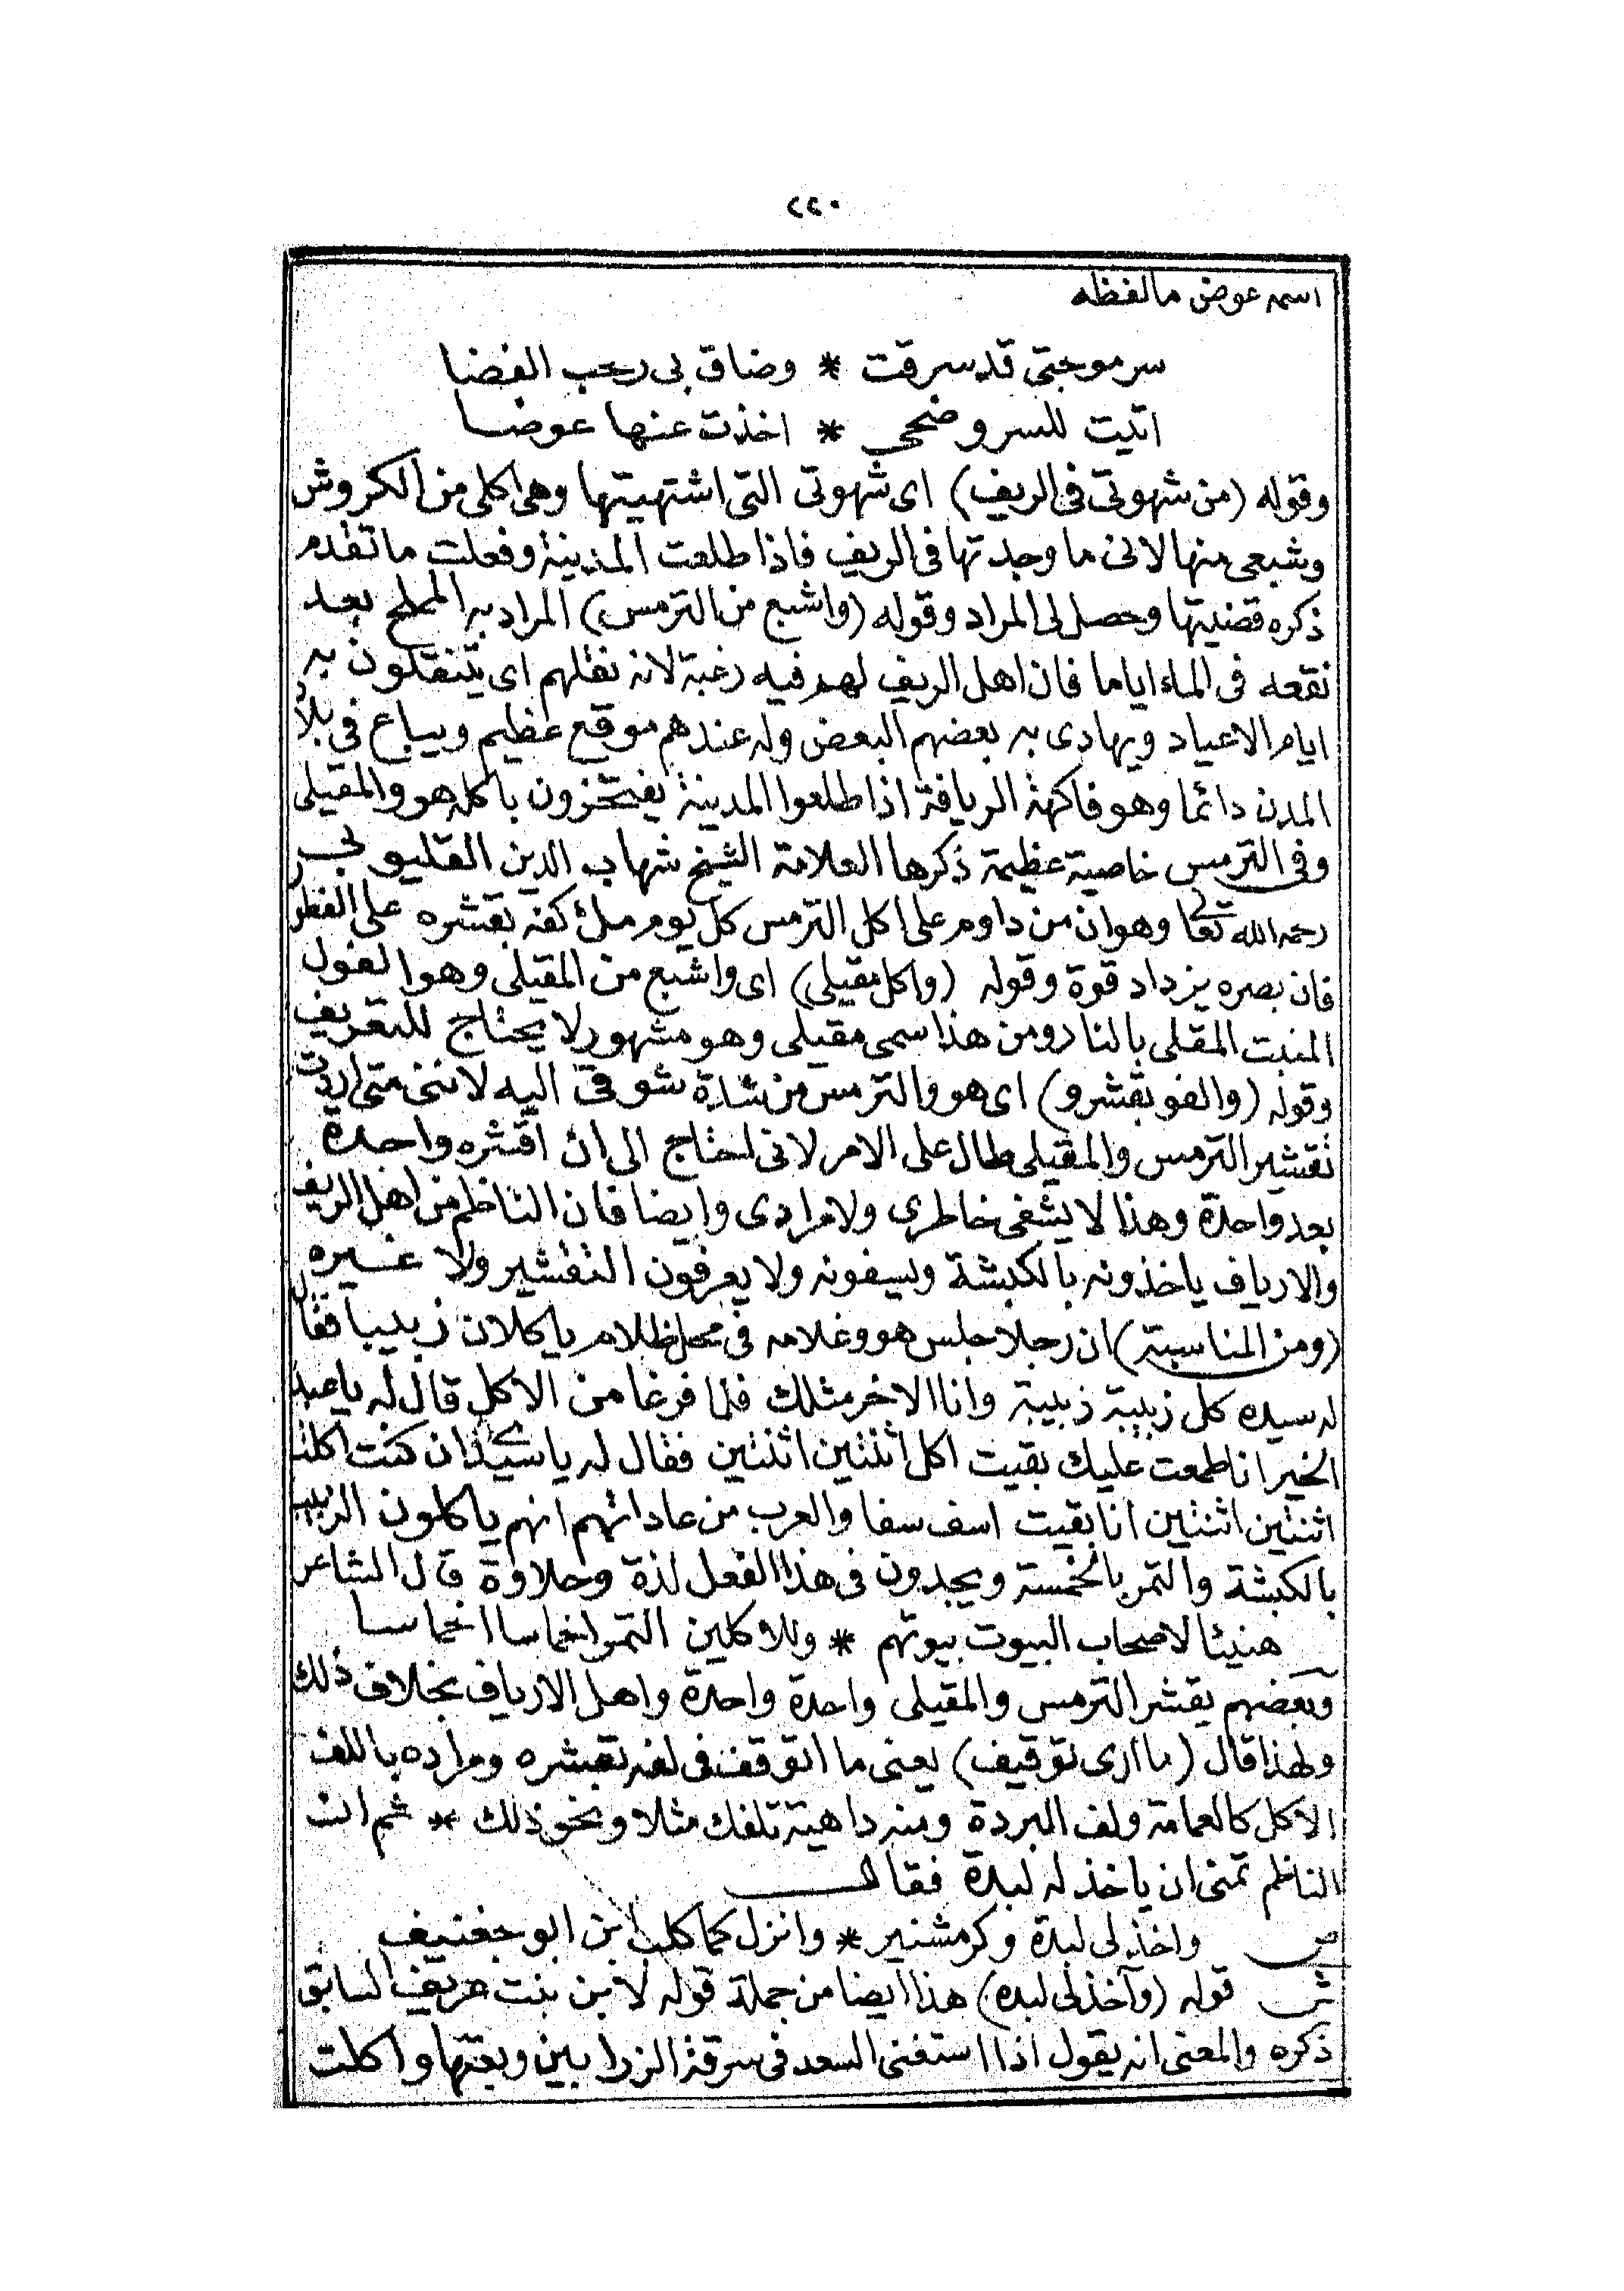 ٢٢٠
اسمه عوض مالفظه
سرموجتى قد سرقت * وضاق بى رحب الفضا
اتيت للسروضحى * اخذت عنها عوضا
وقوله (من شهوتى فى الريف) اى شهوتى التى اشتهيتها وهى اكلى من الكروش
وشبعى منها لانى ما وجدتها فى الريف فاذا طلعت المدينة وفعلت ما تقدم
ذكره قضيتها وحصل لى المراد وقوله (واشبع من الترمس) المراد به المملح بعد
نقعه فى الماء اياما فان اهل الريف لهم فيه رغبة لانه نقلهم اى يتنقلون به
ايام الاعياد ويهادى به بعضهم البعض وله عندهم موقع عظيم ويباع فى بلاد
المدن دائما وهو فاكهة الريافة اذا طلعوا المدينة يفتخرون باكله هو والمقيلى
وفى الترمس خاصية عظيمة ذكرها العلامة الشيخ شهاب الدين القليوبى
رحمه الله تعا وهو ان من داوم على اكل الترمس كل يوم ملئ كفه بقشره على الفطر
فان بصره يزداد قوة وقوله (واكل مقيلى) اى واشبع من المقيلى وهو الفول
المنبت المقلى بالنار ومن هذا سمى مقيلى وهو مشهور لا يحتاج للتعريف
وقوله (والفو بقشرو) اى هو والترمس من شدة شوقى اليه لاننى متى اردت
تقشير الترمس والمقيلى طال على الامر لانى لحتاج الى ان اقشره واحدة
بعد واحدة وهذا لا يشفى خاطرى ولا مرادى وايضا فان الناظم من اهل الريف
والارياف ياخذونه بالكبشة ويسفونه ولا يعرفون التقشير ولا غيره
(ومن المناسبة) ان رجلا جلس هو وغلامه فى محل ظلام ياكلان زبيبا فقال
له سيده كل زبيبة زبيبة وانا الاخر مثلك فلما فرغا من الاكل قال له يا عبد
الخير انا طمعت عليك بقيت اكل اثنتين اثنتين فقال له يا سيدى ان كنت اكلت
اثنتين اثنتين انا بقيت اسف سفا والعرب من عاداتهم انهم ياكلون الزبيب
بالكبشة والتمر بالخمسة ويجدون فى هذا الفعل لذة وحلاوة قال الشاعر
هنيئا لاصحاب البيوت بيوتهم * وللاكلين التمر اخماسا اخماسا
وبعضهم يقشر الترمس والمقيلى واحدة واحدة واهل الارياف بخلاف ذلك
ولهذا قال (ما ارى توقيف) يعنى ما اتوقف فى لفه بقشره ومراده باللف
الاكل كالعمامة ولف البردة ومنه داهية تلفك مثلا ونحو ذلك * ثم ان
الناظم تمنى ان ياخذ له لبدة فقال
ص واخذ لى لبدة وكرمشنير * وانزل كما كلب ابن ابو جغنيف
ش قوله (وآخذ لى لبده) هذا ايضا من جملة قوله لابن بنت عريف السابق
ذكره والمعنى انه يقول اذا استغنى السعد فى سرقة الزرابين وبعتها واكلت